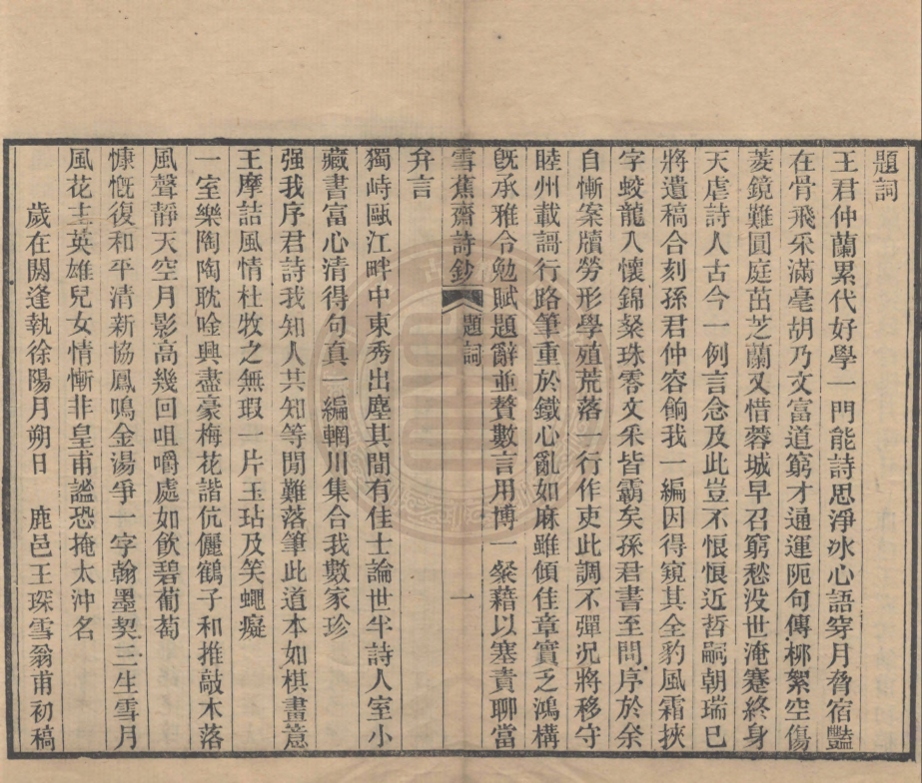 題詞
王君仲蘭累代好學一門能詩思淨冰心語穿月脅宿豔
在骨飛采滿毫胡乃文富道窮才通運阨句傳栁絮空傷
菱鏡難圓庭茁芝蘭又惜蓉城早召窮愁没世淹蹇終身
天虐詩人古今一例言念及此豈不悢悢近哲嗣朝瑞已
將遺稿合刻孫君仲容餉我一編因得窺其全豹風霜挾
字蛟龍入懷錦粲珠零文采皆霸矣孫君書至問序於余
自慚案牘勞形學殖荒落一行作吏此調不彈況將移守
睦州載謌行路筆重於鐵心亂如麻雖傾佳章實乏鴻構
旣承雅令勉賦題辭並贅數言用博一粲藉以塞責聊當
雪蕉齋詩鈔 題詞 一
弁言
獨峙甌江畔中東秀出塵其間有佳士論世半詩人室小
藏書富心清得句真一編輞川集合我數家珍
强我序君詩我知人共知等閒難落筆此道本如棋畫意
王摩詰風情杜牧之無瑕一片玉玷及笑蠅癡
一室樂陶陶耽唫興盡豪梅花諧伉儷鶴子和推敲木落
風聲靜天空月影高幾回咀嚼處如飲碧葡萄
慷慨復和平清新協鳳鳴金湯爭一字翰墨契三生雪月
風花主英雄兒女情慚非皇甫謐恐掩太沖名
歲在閼逢執徐陽月朔日 鹿邑王琛雪翁甫初稿